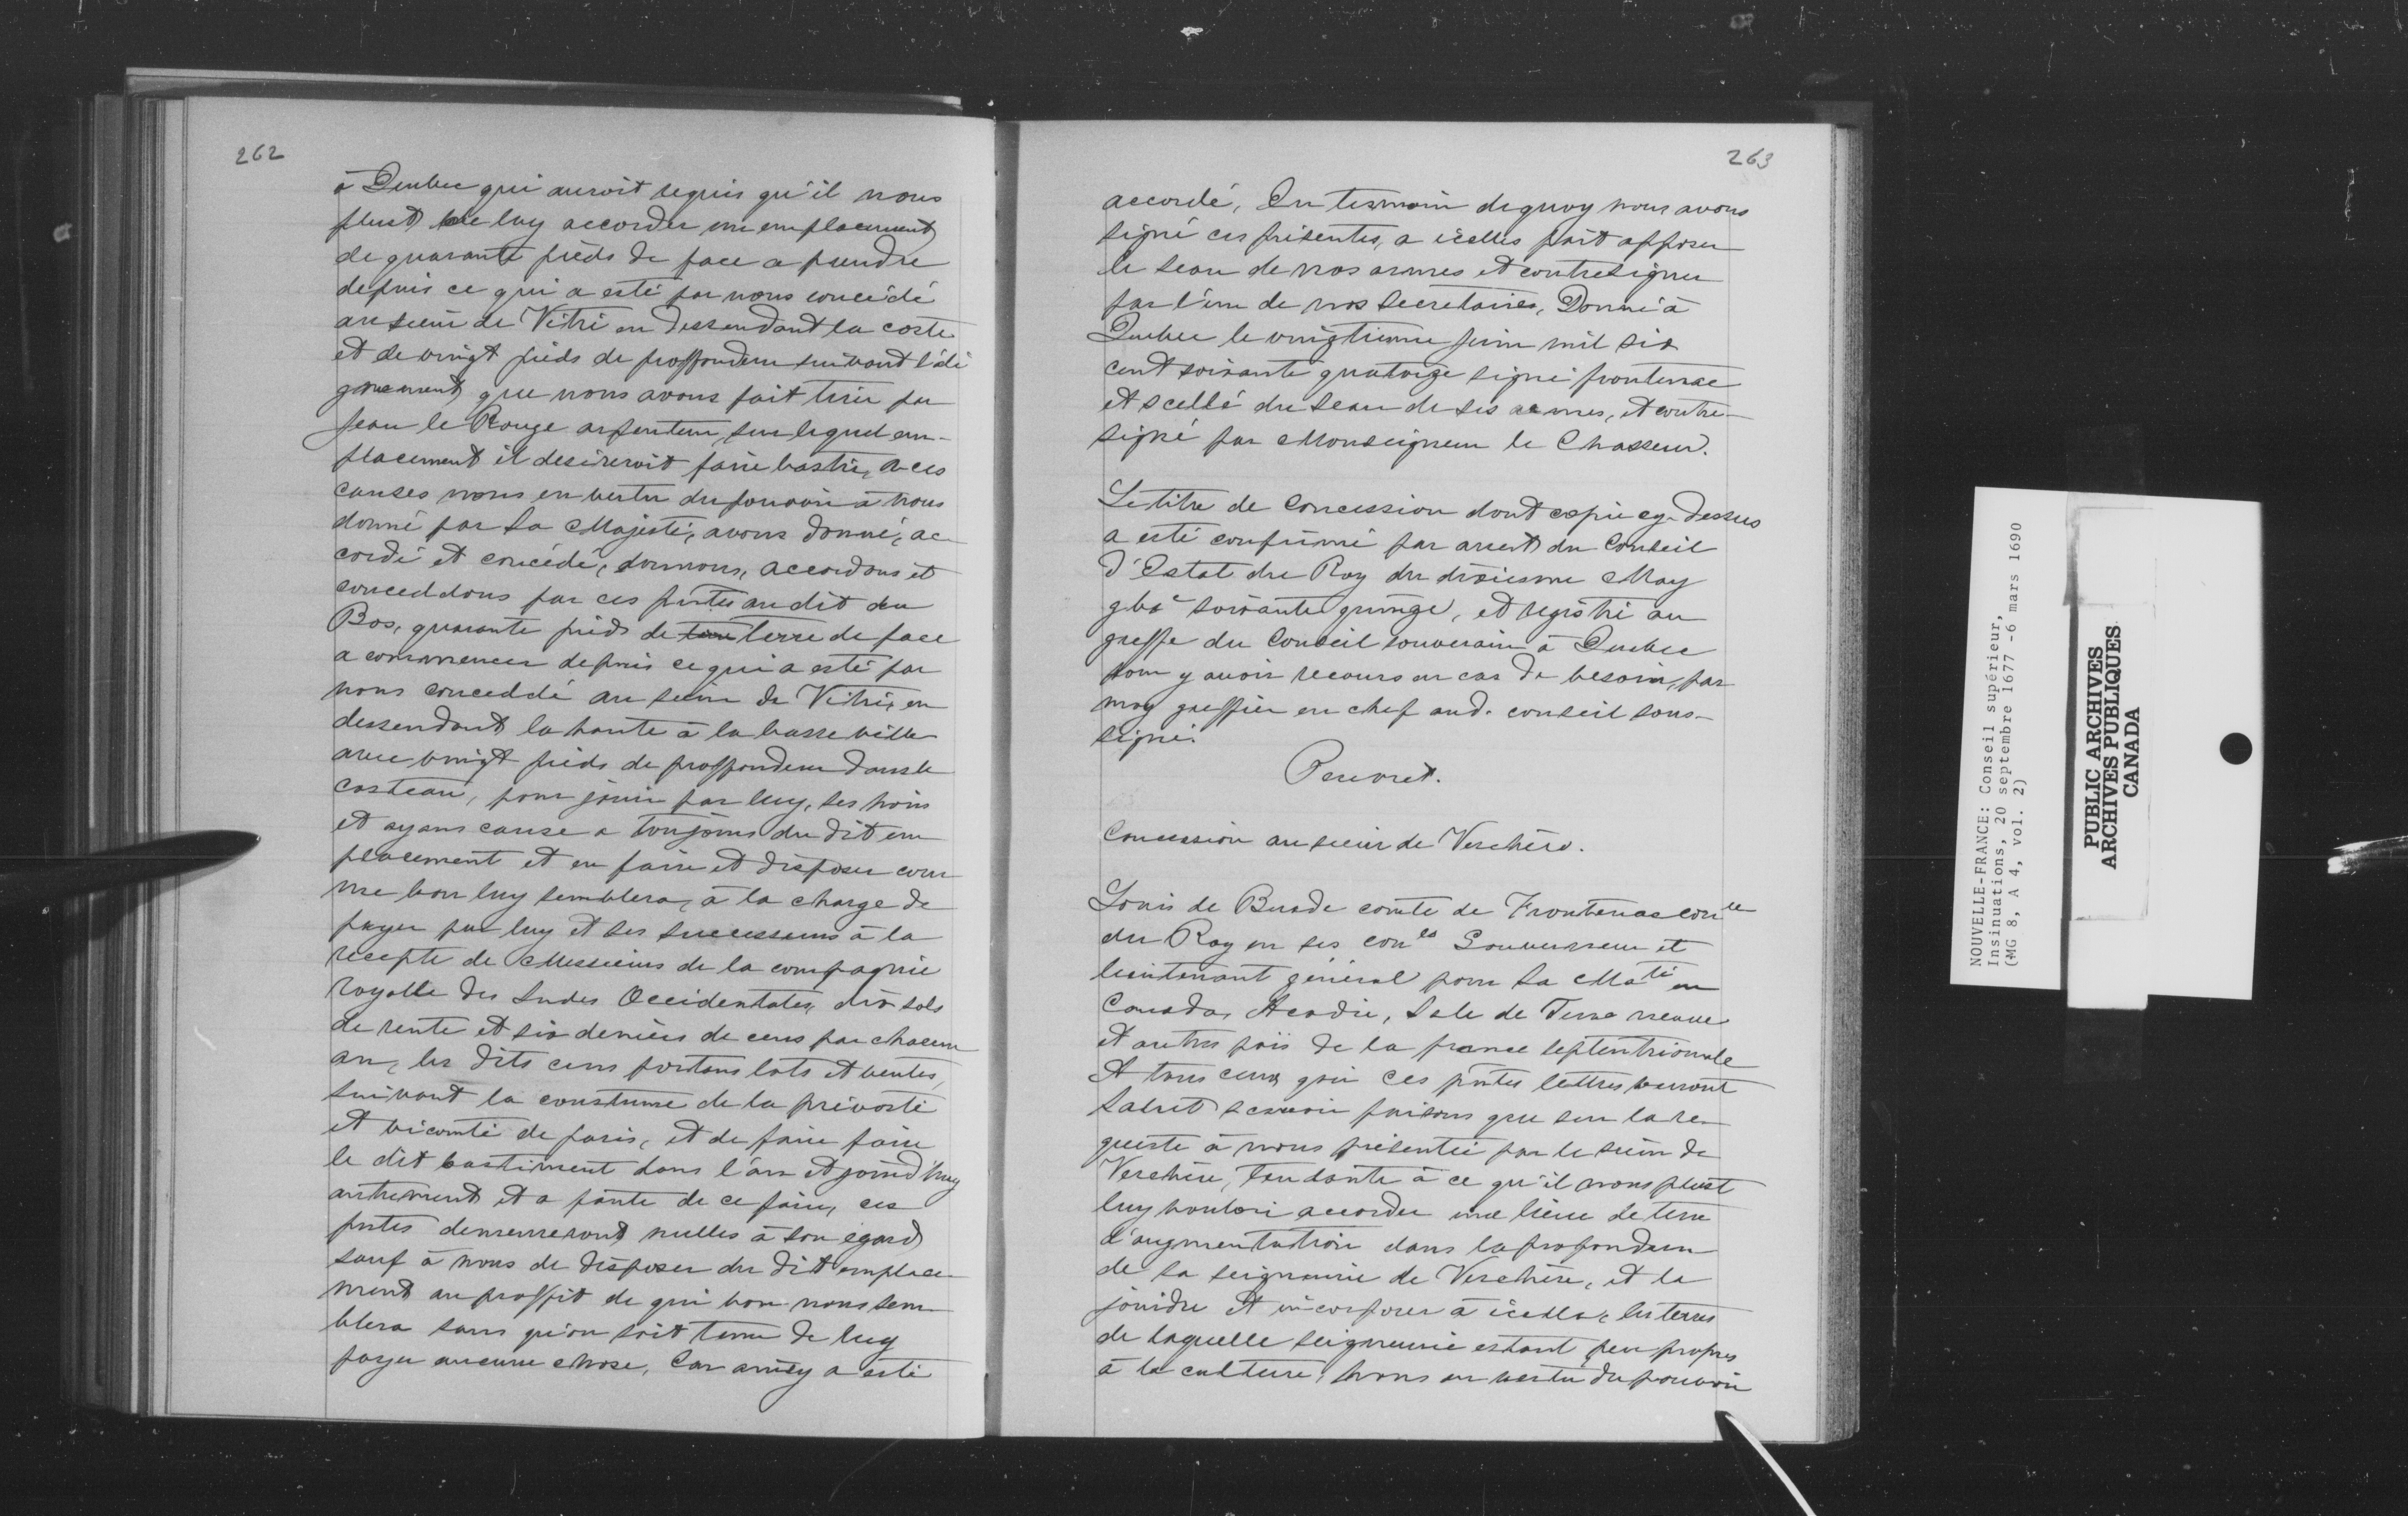 262
à Quebec qui auroit requis qu'il nous
plust de luy accorder un emplacement
de quarante pieds de face a prendre
depuis ce qui a esté par nous concédé
au sieur de Vitré en dessendant la coste
et de vingt pieds de proffondeur suivant l'ali
gnement que nous avons fait tirer par
Jean le Rouge arpenteur, sur lequel em-
placement il desireroit faire bastir, a ces
causes nous en vertu du pouvoir à nous
donné par Sa Majesté, avons donné, ac
cordé et concédé, donnons, accordons et
conceddons par ces pntes au dit du
Bos, quarante pieds de terre de face
a commencer depuis ce qui a esté par
nous conceddé au sieur de Vitré, en
dessendant la haute à la basse ville
avec vingt pieds de proffondeur dans le
costeau, pour jouir par luy, ses hoirs
et ayans cause a toujours du dit em
placement et en faire et disposer com
me bon luy semblera, à la charge de
payer par luy et ses successeurs à la
recepte de Messieurs de la compagnie
royalle des Indes Occidentales, dix sols
de rente et six deniers de cens par chacun
an, les dits cens portans lots et ventes,
suivant la coustume de la prévosté
et vicomté de paris, et de faire faire
le dit bastiment dans l'an et jourd'huy
autrement et a faute de ce faire, ces
pntes demeureront nulles à son égard
sauf à nous de disposer du dit emplace
ment au proffit de qui bon nous sem
blera sans qu'on soit tenu de luy
payer aucune chose, Car ainsy a esté
263
accordé, En tesmoin dequoy nous avons
signé ces présentes, a icelles fait apposer
le seau de nos armes et contresigner
par l'un de nos secretaires, Donné à
Quebec le vingtiesme juin mil six
cent soixante quatorze signé frontenac
et scellé du seau de ses armes, et contre-
signé par Monseigneur le Chasseur.
Le titre de concession dont copie cy-dessus
a esté confirmé par arrest du Conseil
d'Estat du Roy du dixiesme May
gbc soixante quinze, et registré au
greffe du Conseil souverain à Quebec
pour y avoir recours en cas de besoin, par
moy greffier en chef aud. conseil sous-
signé.
Peuvret.
Concession au sieur de Verchère.
Louis de Buade comte de Frontenac conler
du Roy en ses conls Gouverneur et
lieutenant général pour Sa Maté en
Canada, Acadie, Isle de Terre neuve
et autres païs de la france septentrionale
A tous ceux qui ces pntes lettres verront
Salut scavoir faisons que sur la re
queste à nous présentée par le sieur de
Verchère, tendante à ce qu'il nous plust
luy vouloir accorder une lieue de terre
d'augmentation dans la profondeur
de sa seigneurie de Verchère, et la
joindre et incorporer à icelle, les terres
de laquelle seigneurie estant peu propres
à la culture, Nous en vertu du pouvoir
NOUVELLE-FRANCE: Conseil supérieur,
Insinuations, 20 septembre 1677 -6 mars 1690
(MG 8, A 4, vol. 2)
PUBLIC ARCHIVES
ARCHIVES PUBLIQUES
CANADA